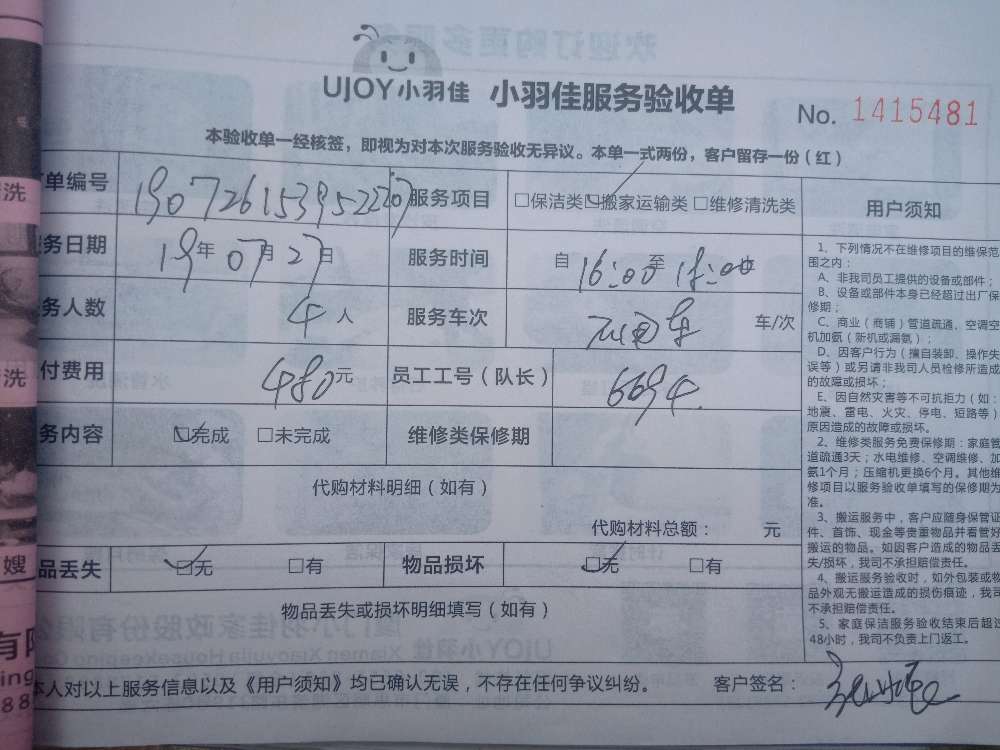 UJOY小羽佳 小羽佳服务验收单 No. 1415481
本验收单一经核签，即视为对本次服务验收无异议。本单一式两份，客户留存一份（红）
单编号 服务项目 □保洁类 ☑搬家运输类 □维修清洗类
务日期 19年07月27日 服务时间 自16:00至18:00止
务人数 4人 服务车次 车/次
付费用 480元 员工工号（队长） 6694
务内容 ☑完成 □未完成 维修类保修期
代购材料明细（如有）
代购材料总额： 元
品丢失 ☑无 □有 物品损坏 ☑无 □有
物品丢失或损坏明细填写（如有）
本人对以上服务信息以及《用户须知》均已确认无误，不存在任何争议纠纷。 客户签名：
用户须知
1、下列情况不在维修项目的维保范
围之内：
A、非我司员工提供的设备或部件；
B、设备或部件本身已经超过出厂保
修期；
C、商业（商铺）管道疏通、空调空
机加氨（新机或漏氨）；
D、因客户行为（擅自装卸、操作失
误等）或另请非我司人员检修所造成
的故障或损坏；
E、因自然灾害等不可抗拒力（如：
地震、雷电、火灾、停电、短路等）
原因造成的故障或损坏。
2、维修类服务免费保修期：家庭管
道疏通3天；水电维修、空调维修、加
氨1个月；压缩机更换6个月。其他维
修项目以服务验收单填写的保修期为
准。
3、搬运服务中，客户应随身保管证
件、首饰、现金等贵重物品并看管好
搬运的物品。如因客户造成的物品丢
失/损坏，我司不承担赔偿责任。
4、搬运服务验收时，如外包装或物
品外观无搬运造成的损伤痕迹，我司
不承担赔偿责任。
5、家庭保洁服务验收结束后超过
48小时，我司不负责上门返工。
洗
洗
嫂
有限
ing
88